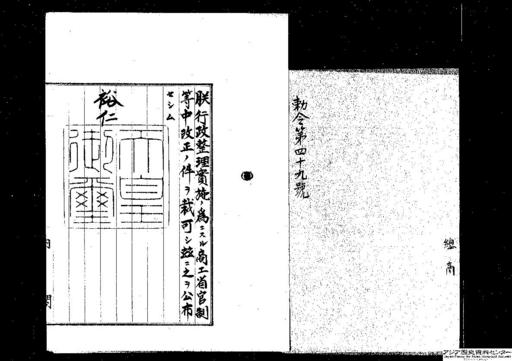 勅令第四十九號
總商
朕行政整理實施ノ為ニスル商工省官制
等中改正ノ件ヲ裁可シ玆ニ之ヲ公布
セシム
裕仁
天皇
御璽
内閣
アジア歴史資料センター